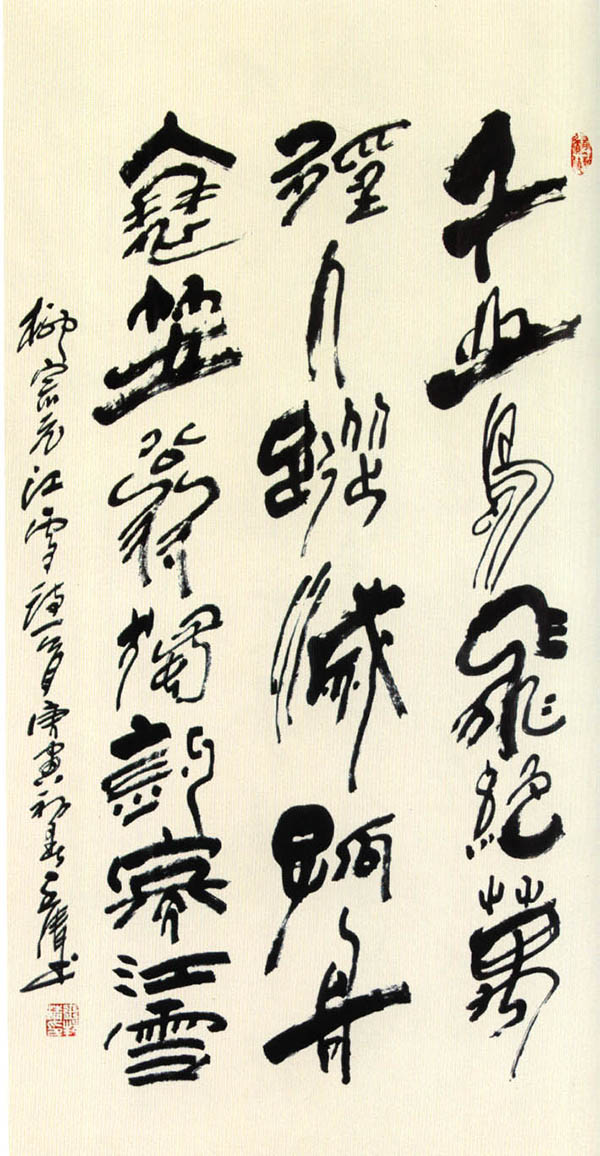 千山鳥飛絕萬
徑人蹤滅孤舟
蓑笠翁獨釣寒江雪
柳宗元江雪詩一首庚寅初春书